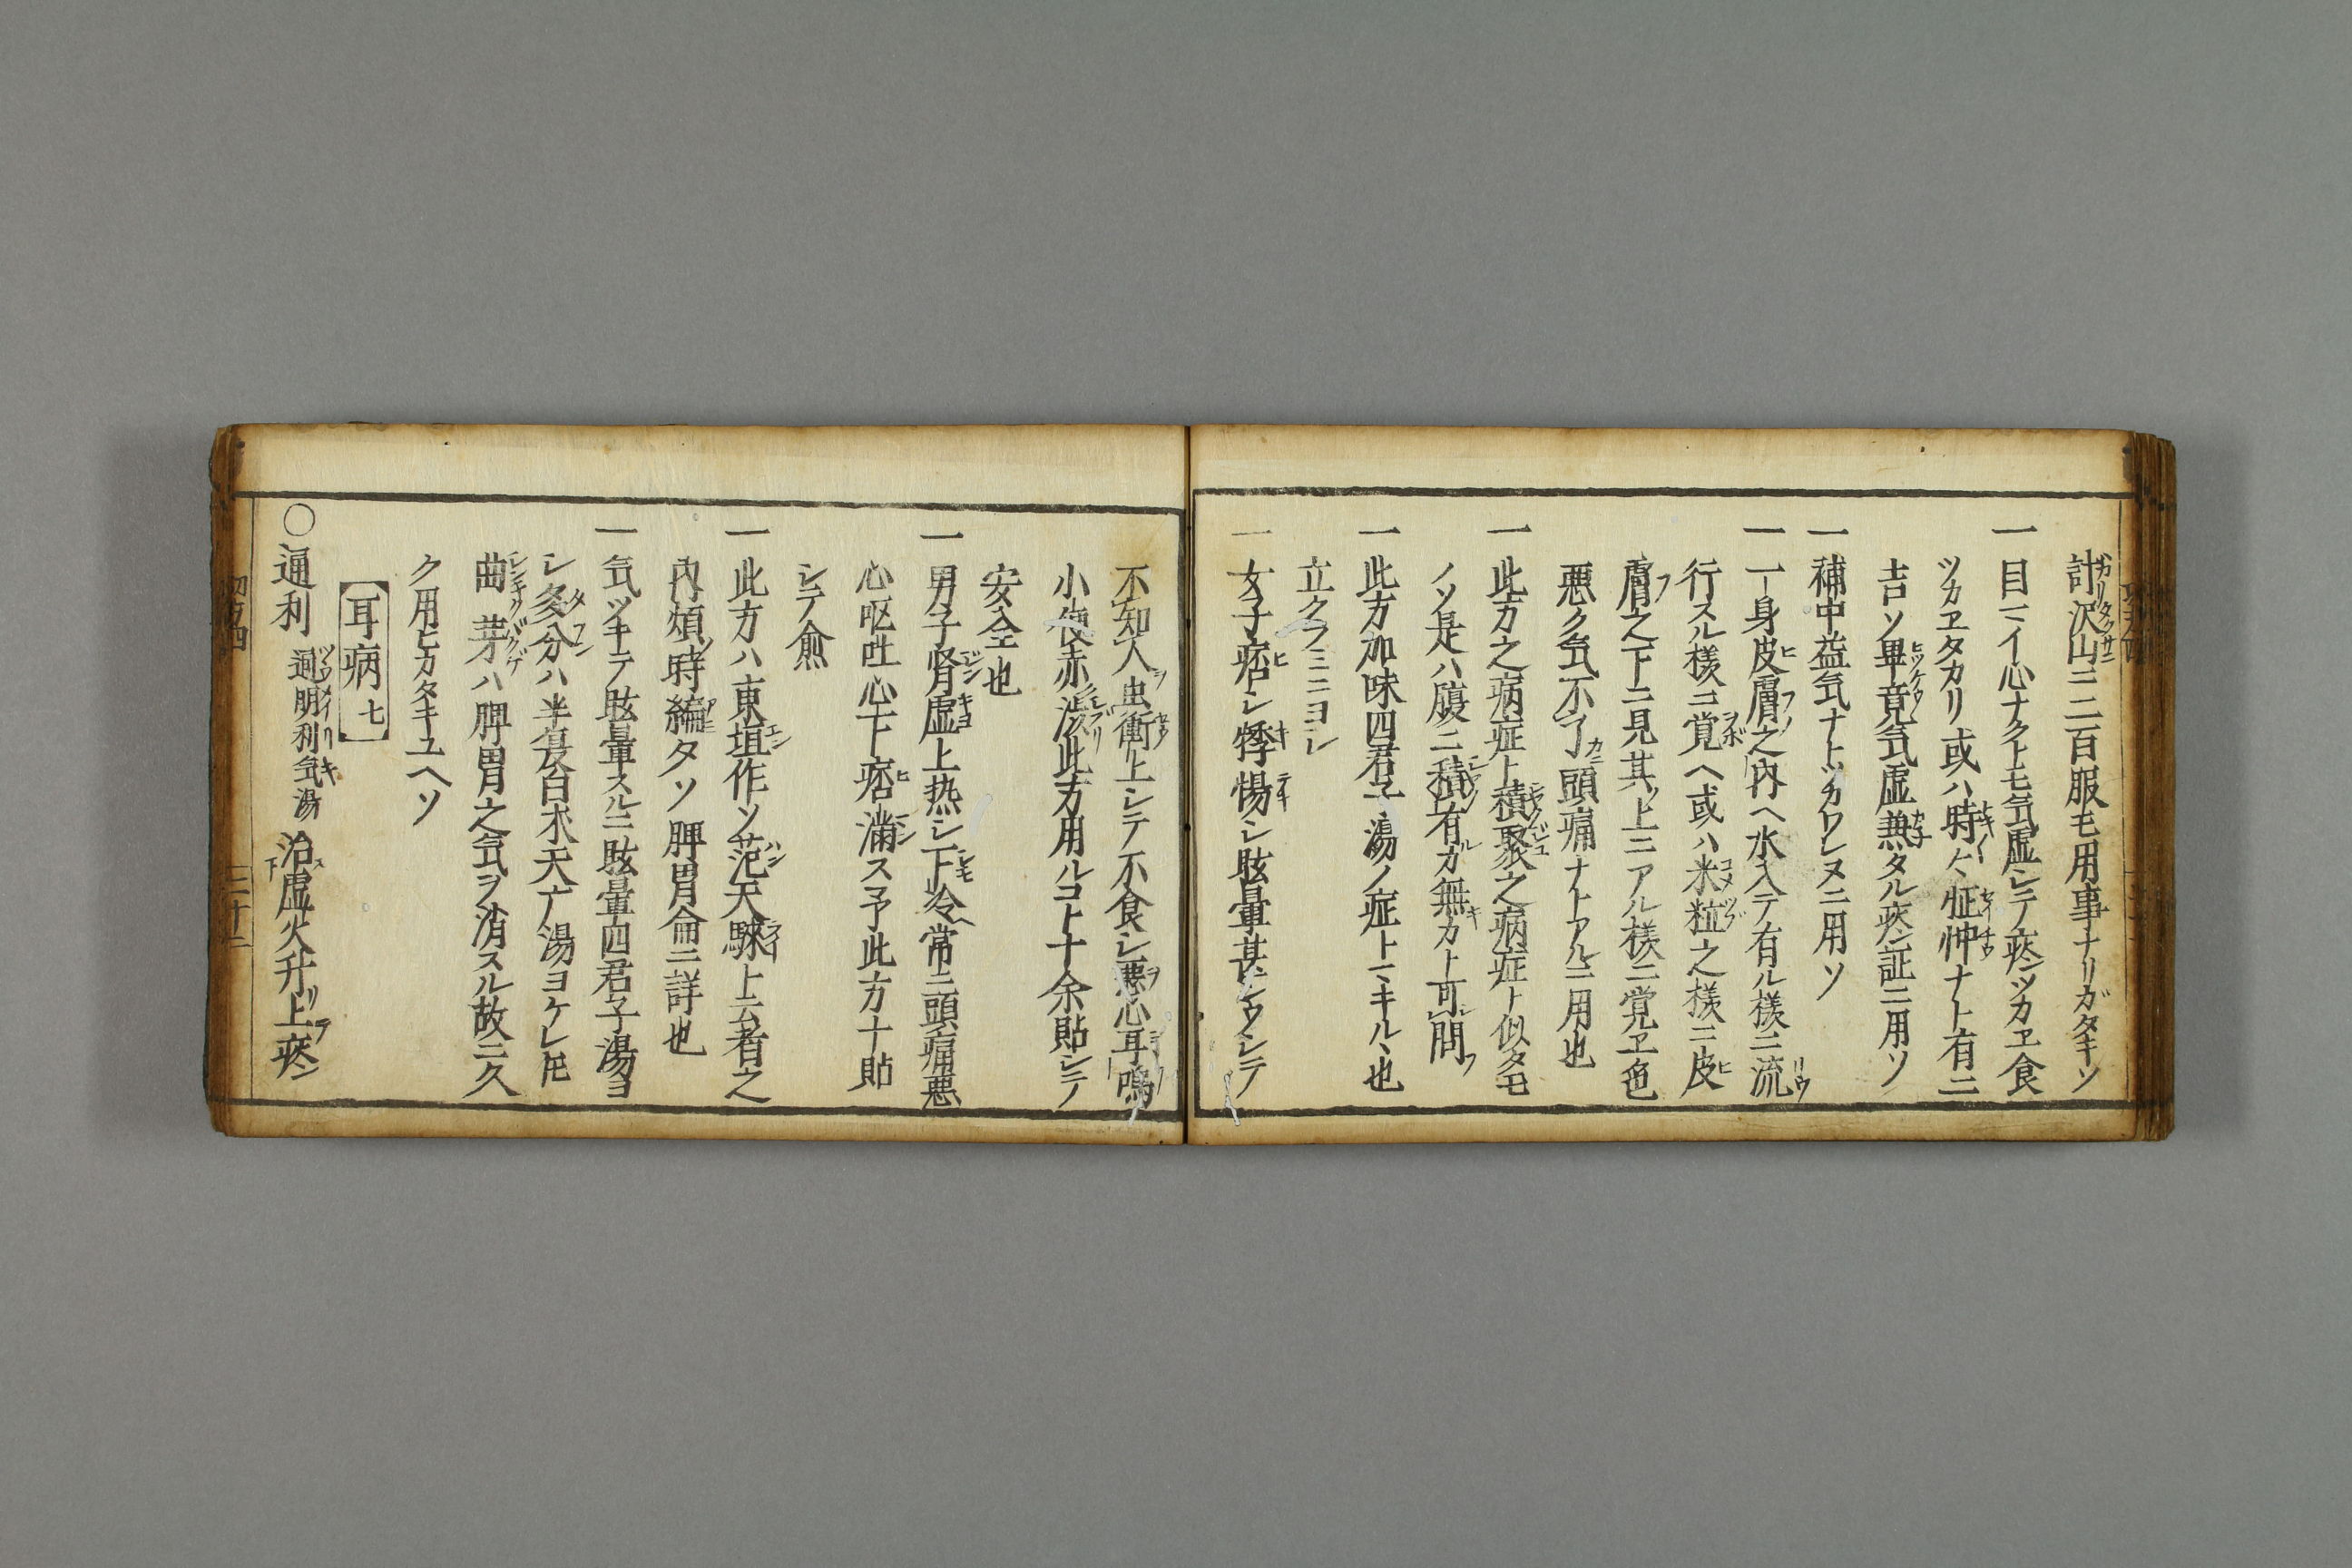 計沢山ニ二三百服モ用事ナリガタキソ
一目マイ心ナクトモ気虚シテ痰ツカヱ食
ツカヱタカリ或ハ時々怔忡ナト有ニ
吉ソ畢竟気虚無タル痰証ニ用ソ
一補中益気ナトツカワレヌニ用ソ
一一身皮膚之内ヘ水入テ有ル様ニ流
行スル様ニ覚ヘ或ハ米粒之様ニ皮
膚之下ニ見其上ニアル様ニ覚ヱ色
悪ク気不了頭痛ナトアルニ用也
一此方之病症ト積聚之病症ト似タモ
ノソ是ハ腹ニ積有カ無カト可問
一此方加味四君子湯ノ症トマキルヽ也
立クラミニヨシ
一女子痞シ悸惕シ眩暈甚シウシテ
不知人虫衝上シテ不食シ悪心耳鳴
小便赤渋此方用ルコト十余貼シテ
安全也
一男子腎虚上热シ下冷常ニ頭痛悪
心呕吐心下痞満ス予此方十貼
シテ愈
一此方ハ東垣作ソ范天騋ト云者之
内煩時編タソ脾胃侖ニ詳也
一気ツキテ眩暈スルニ眩暈四君子湯ヨ
シ多分ハ半夏白朮天亡湯ヨケレ𪜈
曲芽ハ脾胃之気ヲ消スル故ニ久
ク用ヒカタキユヘソ
【耳病七】
○通利 通明利気湯 治虚火升上痰
二十二